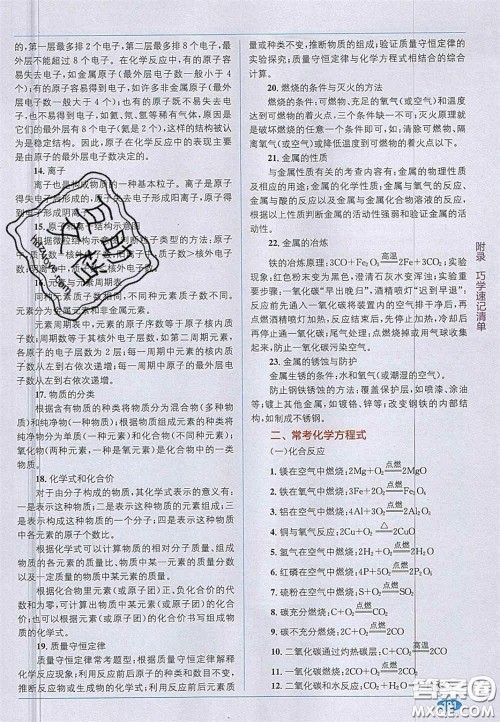 的,第一层最多排2个电子,第二层最多排8个电子,最
外层不能超过8个电子。在化学反应中,有的原子容
易失去电子,如金属原子(最外层电子数一般小于4
个);有的原子容易得到电子,如许多非金属原子(最外
层电子数一般大于4个);也有的原子既不易失去电
子,也不易得到电子,如氦、氖、氩等稀有气体,原因是
它们的最外层有8个电子(氦是2个),这样的结构被认
为是稳定结构。因此,原子在化学反应中的表现主要
是由原子的最外层电子数决定的。
14. 离子
离子也是构成物质的一种基本粒子。离子是原子
得失电子形成的,原子失去电子形成阳离子,原子得
到电子形成阴离子
15.
类型的方法:原子中,
质子数
核外电子数
数。
16. 元素与元素周期表
元素周期表中,元素的原子序数等于原子核电
荷数,原子核外电子层数等于周期数,如第二周期元素,各
原子的电子层数为2;每一周期从左向右的元素的核电
荷数从左向右依次递增,每周期中原子的最外层电子
数从左向右依次递增。
17. 物质的分类
根据含有物质的种类将物质分为混合物(多种物
质)和纯净物(一种物质),根据组成元素的种类将
纯净物分为单质(一种元素)和化合物(不同种元素),
氧化物(两种元素,一种是氧元素)是化合物中的一类
物质。
18. 化学式和化合价
对于由分子构成的物质,其化学式表示的意义有:
一是表示这种物质,二是表示这种物质的元素组成,三
是表示构成这种物质的一个分子,四是表示构成这种
物质的各元素的原子个数比。
根据化学式可以计算物质的相对分子质量、组成
物质的各元素的质量比、物质中某一元素的质量分数
以及一定质量的物质中某元素的质量。
根据化合物里元素(或原子团)正、负化合价的代
数和为零,可计算出物质中某元素(或原子团)的化合
价,也可根据元素(或原子团)的化合价书写组成物质
的化学式。
19. 质量守恒定律
质量守恒定律常考题型:根据质量守恒定律解释
化学反应前后物质的质量变化;利用反应前后原子数不变
推断反应物或生成物的化学式;利用反应前后元素质
量或种类不变,推断物质的组成;验证质量守恒定律的
实验探究;质量守恒定律与化学方程式相结合的综合
计算。
20. 燃烧的条件与灭火的方法
燃烧的条件:可燃物、充足的氧气(或空气)和温度
达到可燃物的着火点,三个条件缺一不可;灭火的原理
就是破坏燃烧的条件(一个即可),如:清除可燃物、隔
离氧气(或空气)或降低温度到可燃物的着火点以下。
21. 金属的性质
与金属性质有关的考查内容有:金属的物理性质
及相应的用途;金属的化学性质,金属与氧气的反应,
金属与酸的反应以及金属与金属化合物溶液的反应;
根据以上性质判断金属的活动性强弱和验证金属的活
动性。
22. 金属的冶炼
铁的冶炼原理:3CO+Fe₂O₃ 高温 2Fe+3CO₂;实验
现象:红棕色粉末变成黑色,澄清石灰水变浑浊;实验
步骤:一氧化碳“早出晚归”,酒精喷灯“迟到早退”,即
反应前先通入一氧化碳将装置内的空气排干净后,再
点燃酒精喷灯加热,反应完成后,先停止加热,继续通
入一氧化碳到冷却后停止;点燃烧掉或用气球收集一
氧化碳,防止一氧化碳污染空气。
23. 金属的锈蚀与防护
金属生锈的条件:水和氧气(或潮湿的空气)。防
止钢铁锈蚀的方法:覆盖保护层,如喷漆、涂油
等;表面镀金属,如镀铬、锌等;改变钢铁的内部结
构,如制成不锈钢。
二、常考化学方程式
(一)化合反应
1. 镁在空气中燃烧:2Mg+O₂ 点燃 2MgO
2. 铁在氧气中燃烧:3Fe+2O₂ 点燃 Fe₃O₄
3. 铝在空气中燃烧:4Al+3O₂ 点燃 2Al₂O₃
4. 铜与氧气反应:2Cu+O₂ △ 2CuO
5. 氢气在空气中燃烧:2H₂+O₂ 点燃 2H₂O
6. 红磷在空气中燃烧:4P+5O₂ 点燃 2P₂O₅
7. 硫在空气中燃烧:S+O₂ 点燃 SO₂
8. 碳充分燃烧:C+O₂ 点燃 CO₂
9. 碳不充分燃烧:2C+O₂ 点燃 2CO
10. 二氧化碳通过灼热碳层:C+CO₂ 高温 2CO
11. 一氧化碳燃烧:2CO+O₂ 点燃 2CO₂
12. 二氧化碳和水反应:CO₂+H₂O
附录 巧学速记清单
答案圈
MXQE.COM